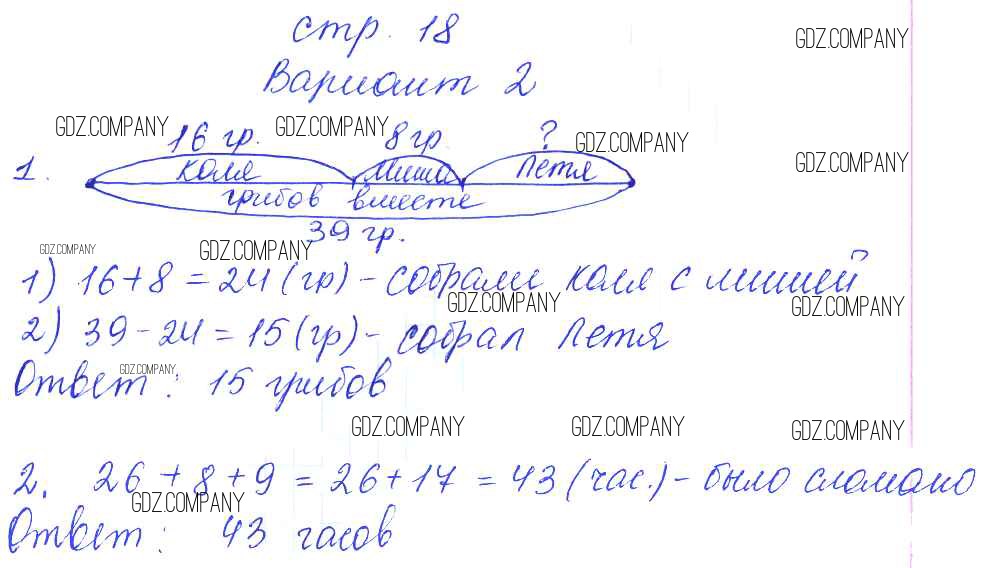 стр. 18
GDZ.COMPANY
Вариант 2
GDZ.COMPANY GDZ.COMPANY GDZ.COMPANY GDZ.COMPANY
16 гр. 8 гр. ?
1. Коля Миша Петя
грибов вместе
39 гр.
GDZ.COMPANY GDZ.COMPANY
1) 16+8 = 24 (гр) - собрали Коля с Мишей
GDZ.COMPANY GDZ.COMPANY
2) 39 - 24 = 15 (гр) - собрал Петя
GDZ.COMPANY
Ответ: 15 грибов
GDZ.COMPANY GDZ.COMPANY GDZ.COMPANY
2. 26 + 8 + 9 = 26 + 17 = 43 (час.) - было сломано
GDZ.COMPANY
Ответ: 43 часов